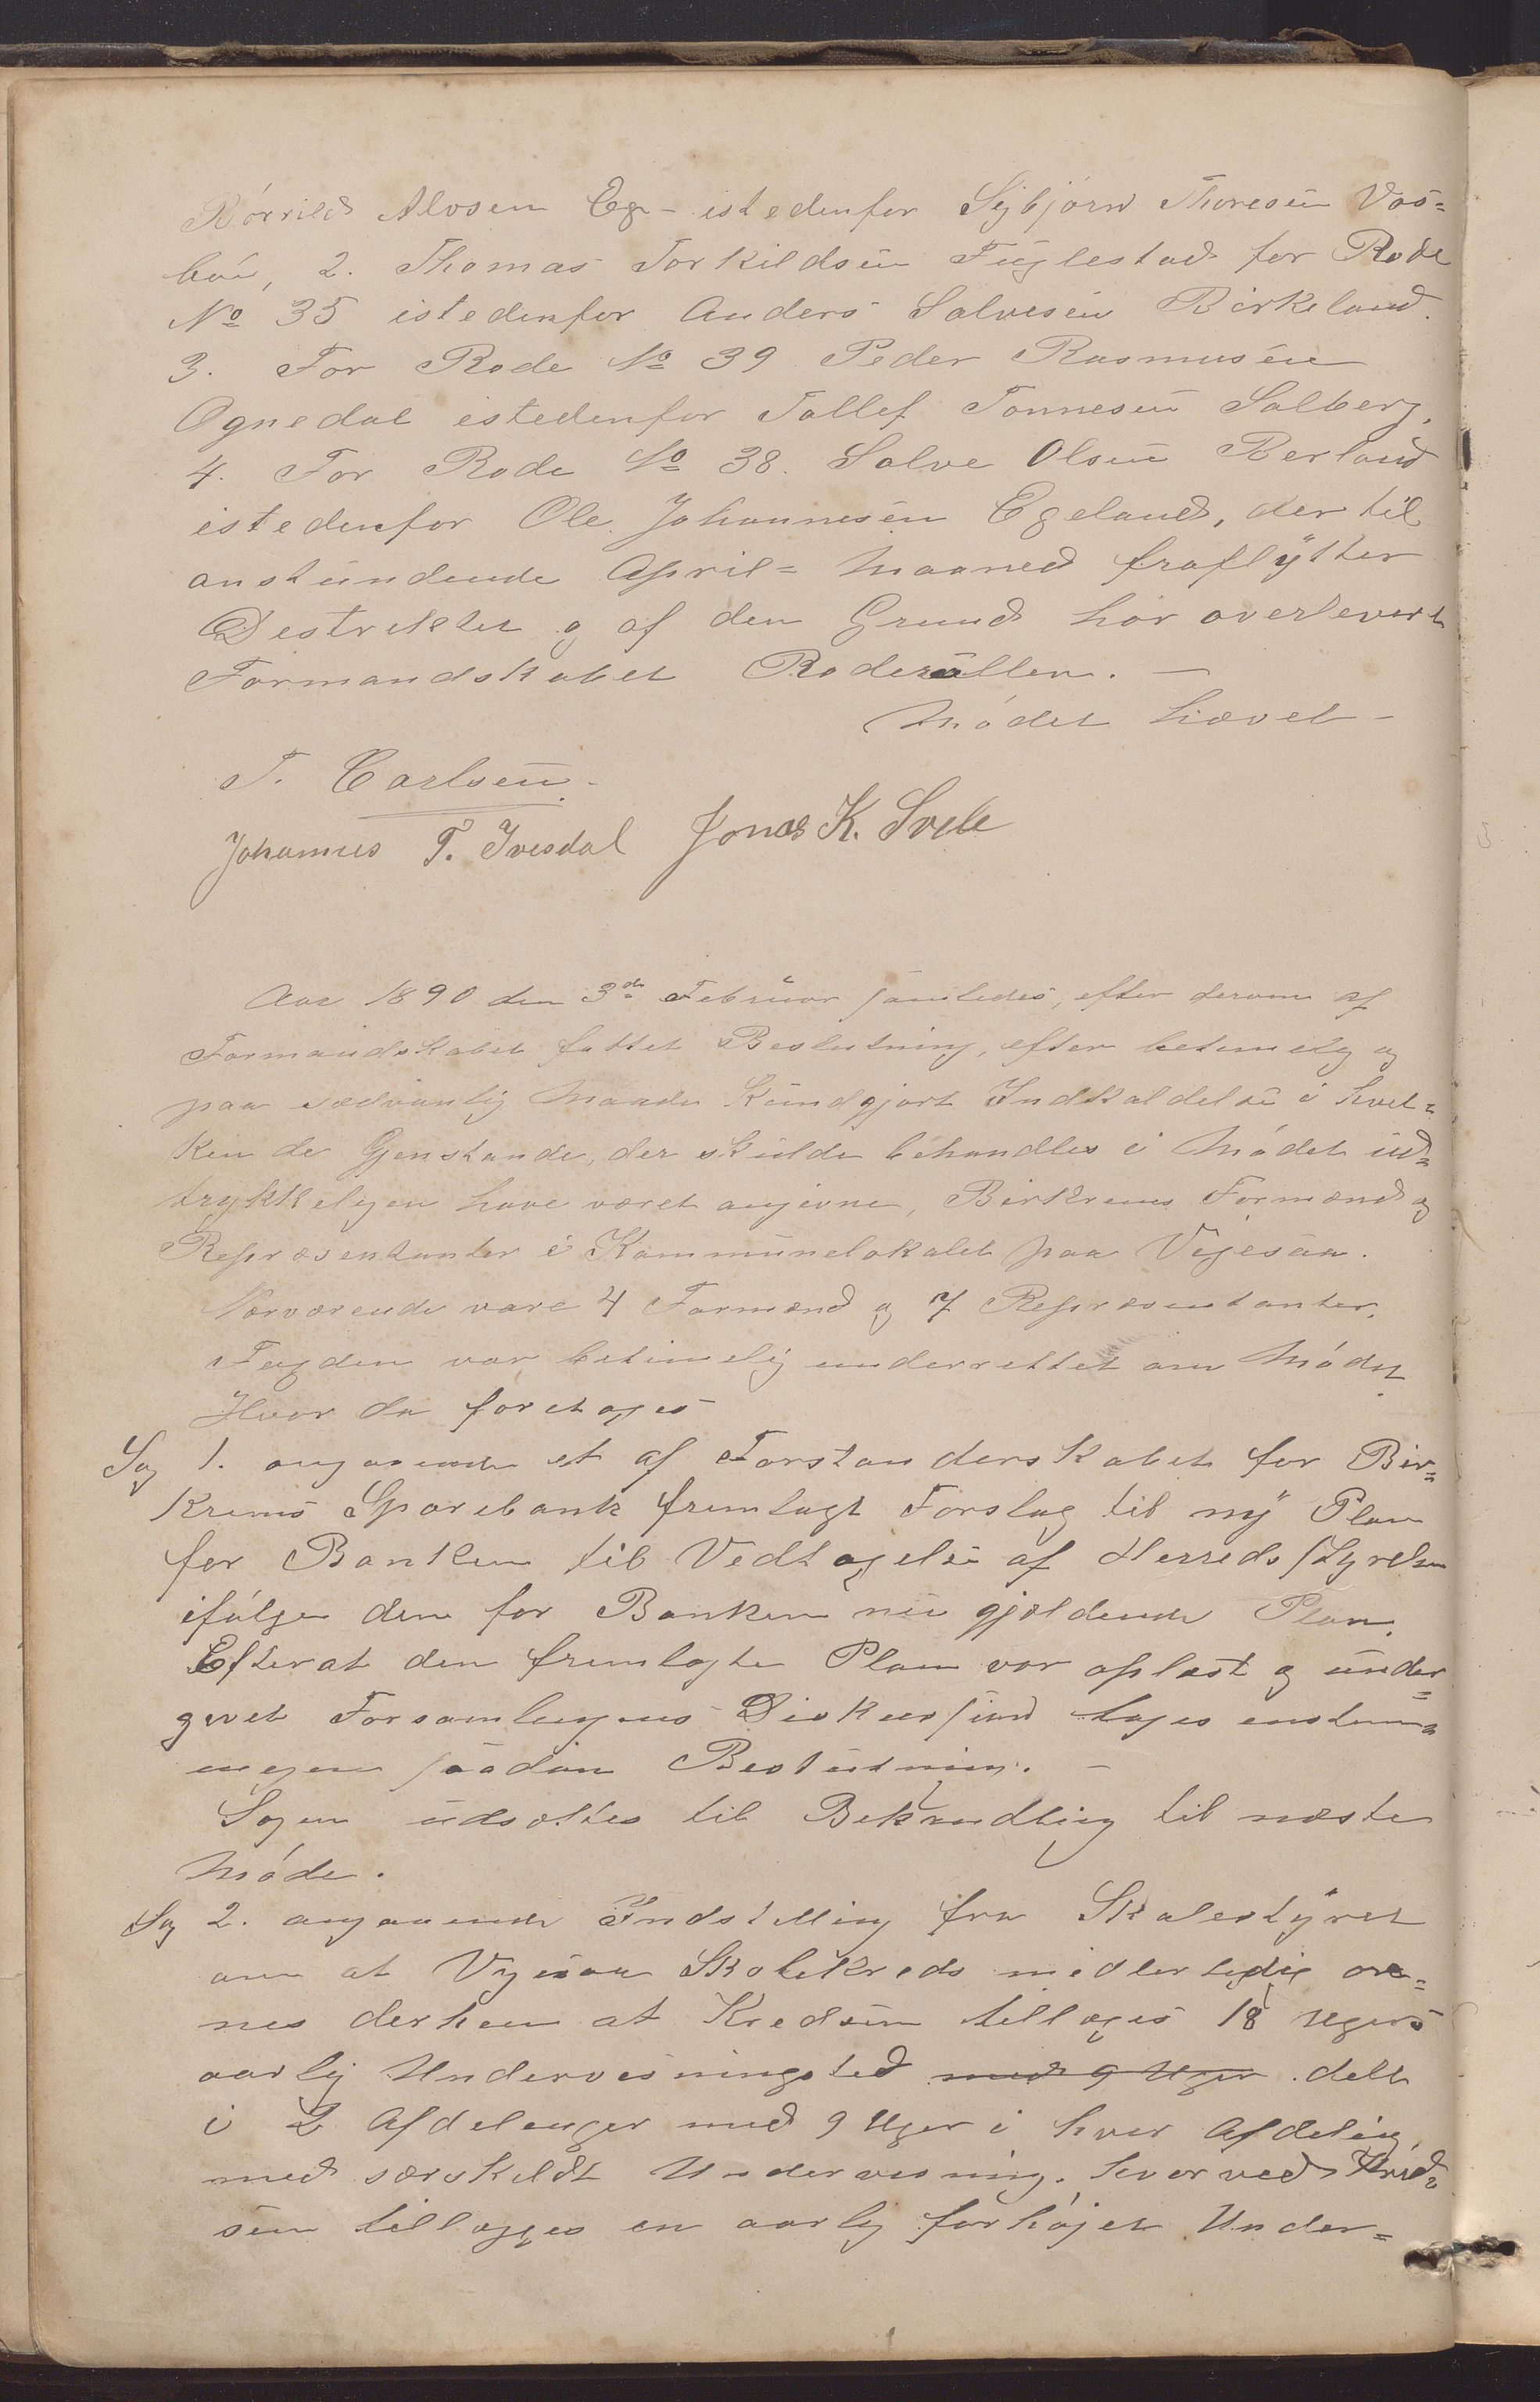 Alvsen Eg- istedenfor Sigbjørn Thoresen Vas=
bø, 2. Thomas Torkildsen Fuglestad for Rode
No 35 istedenfor Anders Salvesen Birkeland.
3. For Rode No 39 Peder Rasmusen
Ognedal istedenfor Tollef Tonnesen Solberg.
4. For Rode No 38. Salve Olsen Berland
istedenfor Ole Johannesen Egeland, der til
anstundende April= Maaned fraflytter
Destrektet og af den Grund har overlevert
Formandskabet Roderullen. –
Mødet hævet –
T. Carlsen.
Johannes T. Ivesdal Jonas K. Svele
Aar 1890 den 3de Februar samledes, efter derom af
Formandskabet fattet Beslutning, efter betimelig og
paa sædvanlig Maade Kundgjort Indkaldelse i hvil=
ken de Gjenstande, der skulde behandles i Mødet ud=
trykkelgen have været angivne, Birkrems Formænd og
Repræsentanter i Kommunelokalet paa Vigesaa.
Nærværende vare 4 Formænd og 7 Repræsentanter.
Fogden var betimelig underrettet om Mødet
Hvor da foretoges
Sag 1. angaaende et af Forstanderskabet for Bir=
krems Sparebank fremlagt Forslag til ny Plan
for Banken til Vedtagelse af Herredsstyrelsen
ifølge den for Banken nu gjældende Plan.
Efterat den fremlagte Plan var oplæst og under=
givet Forsamlingens Diskussion toges enstem=
megen saadan Beslutning. –
Sagen udsættes til Behandling til næste
Møde.
Sag 2. angaaende Indstilling fra Skolestyret
om at Vigesaa Skolekreds midlertidig ord=
nes derhen at Kredsen tillægges 18 Ugers
aarlig Undervisningstid med 9 Uger delt
i 2 Afdelenger med 9 Uger i hver Afdeling
med særskildt Undervisning. hvorved Kred=
sen tillægges en aarlig forhøjet Under=